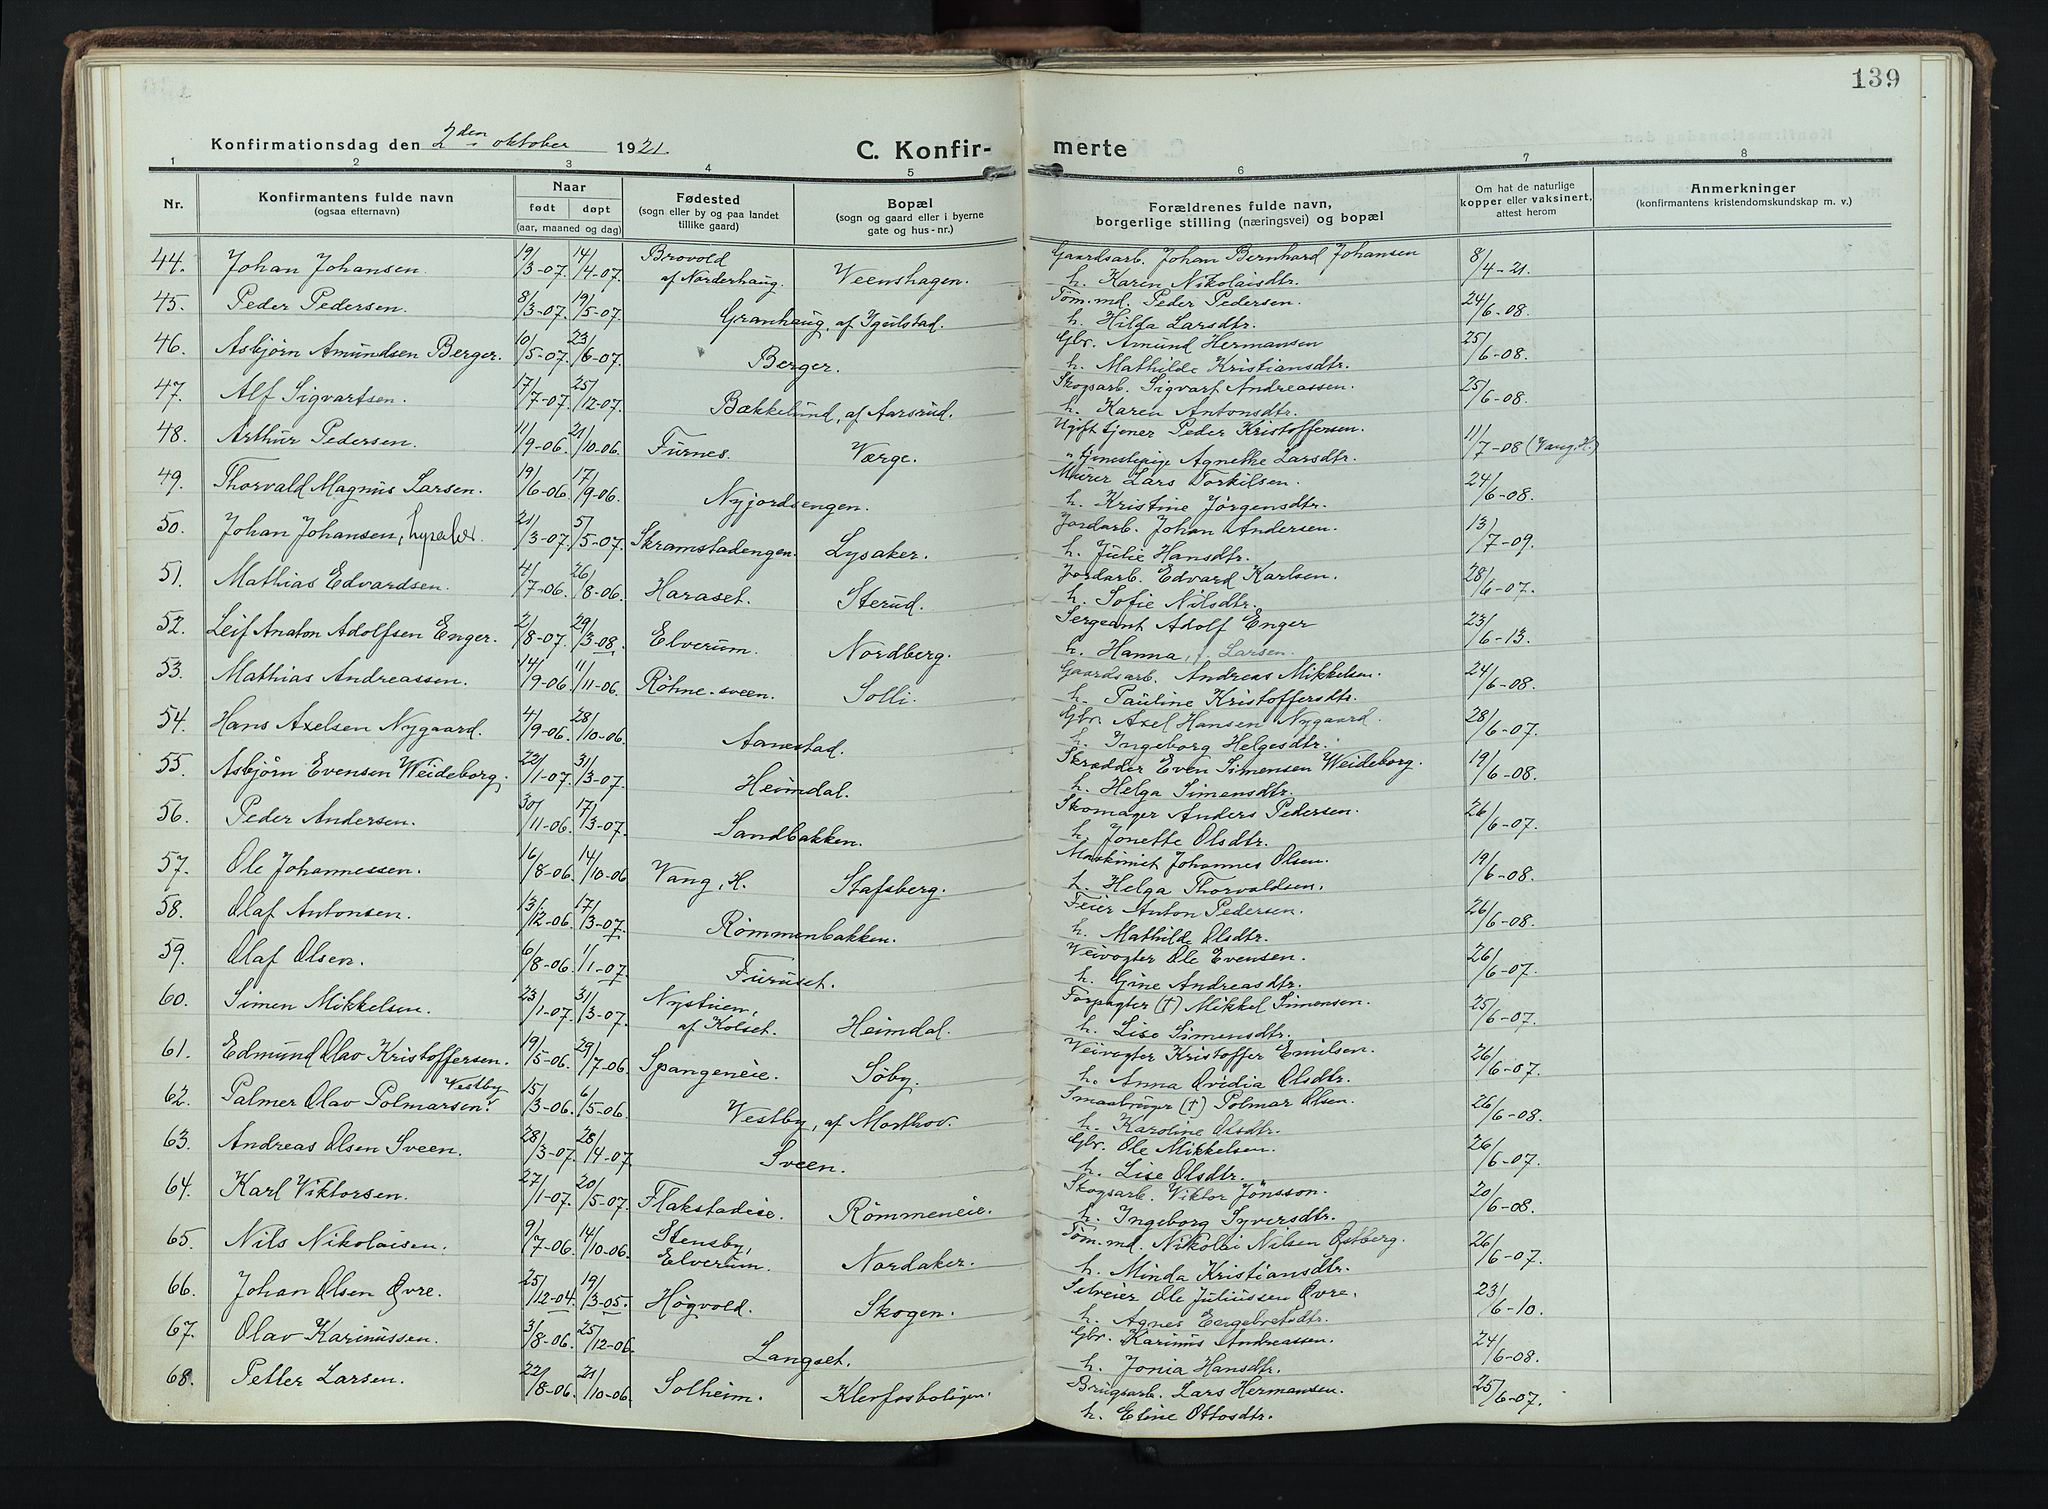 139
Konfirmationsdag den 2den oktober 1921.
C. Konfir- merte
1 2 3 4 5 6 7 8
Nr.
Konfirmantens fulde navn
(ogsaa efternavn)
Naar
født døpt
(aar, maaned og dag)
Fødested
(sogn eller by og paa landet
tillike gaard)
Bopæl
(sogn og gaard eller i byerne
gate og hus-nr.)
Forældrenes fulde navn,
borgerlige stilling (næringsvei) og bopæl
Om hat de naturlige
kopper eller vaksinert,
attest herom
Anmerkninger
(konfirmantens kristendomskundskap m. v.)
44. Johan Johansen. 19/3-07. 14/4-07. Brovold af Norderhaug. Veenshagen. Gaardsarb. Johan Bernhard Johansen 8/4-21.
h. Karen Nikolaisdtr.
45. Peder Pedersen. 8/3-07. 19/5-07. Granhaug, af Iguilstad. Tøm.md. Peder Pedersen. 24/6-08.
h. Hilda Larsdtr.
46. Asbjørn Amundsen Berger. 10/5-07. 23/6-07. Berger. Gbr. Amund Hermansen 25/6-08.
h. Mathilde Kristiansdtr.
47. Alf Sigvartsen. 17/7-07. 25/12-07. Bækkelund, af Aarsrud. Skogsarb. Sigvart Andreassen. 25/6-08.
h. Karen Antonsdtr.
48. Arthur Pedersen. 11/9-06. 21/10-06. Furnes. Værge. Ugift tjener Peder Kristoffersen. 11/7-08 (Vang, H.)
" tjenestepige Agnethe Larsdtr.
49. Thorvald Magnus Larsen. 19/6-06. 17/9-06. Nyjordsengen. Murer Lars Torkilsen. 24/6-08.
h. Kristine Jørgensdtr.
50. Johan Johansen, Lysaker. 21/3-07. 5/5-07. Skramstadengen. Lysaker. Jordarb. Johan Andersen. 13/7-09.
h. Julie Hansdtr.
51. Mathias Edvardsen. 4/7-06. 26/8-06. Haraset. Sterud. Jordarb. Edvard Karlsen. 28/6-07.
h. Sofie Nilsdtr.
52. Leif Anton Adolfsen Enger. 2/8-07. 29/3-08. Elverum. Nordberg. Sergeant Adolf Enger 23/6-13.
h. Hanna, f. Larsen.
53. Mathias Andreassen. 14/9-06. 11/11-06. Røhne-sveen. Solli. Gaardsarb. Andreas Mikkelsen. 24/6-08.
h. Pauline Kristoffersdtr.
54. Hans Axelsen Nygaard. 4/9-06. 28/10-06. Aanestad. Gbr. Axel Hansen Nygaard. 28/6-07.
h. Ingeborg Helgesdtr.
55. Asbjørn Evensen Weideborg. 22/1-07. 31/3-07. Heimdal. Skrædder Even Simensen Weideborg. 19/6-08.
h. Helga Simensdtr.
56. Peder Andersen. 30/11-06. 17/3-07. Sandbakken. Skomager Anders Pedersen. 26/6-07.
h. Jonette Olsdtr.
57. Ole Johannessen. 16/8-06. 14/10-06 Vang, H. Stafsberg. Maskinist Johannes Olsen. 19/6-08.
h. Helga Thorvaldsen.
58. Olaf Antonsen. 13/12-06. 17/3-07. Rømmenbakken. Feier Anton Pedersen. 26/6-08.
h. Mathilde Olsdtr.
59. Olaf Olsen. 6/8-06. 1/1-07. Furuset. Veivogter Ole Evensen. 26/6-07.
h. Gine Andreasdtr.
60. Simen Mikkelsen. 23/1-07. 31/3-07. Nystuen, af Kolset. Heimdal. Forpagter (†) Mikkel Simensen. 25/6-07.
h. Lise Simensdtr.
61. Edmund Olav Kristoffersen. 19/5-06. 29/7-06. Spangeneie. Søby. Veivogter Kristoffer Emilsen. 26/6-07.
h. Anna Ovidia Olsdtr.
62. Palmer Olav Polmarsen Vestby. 15/3-06. 6/5-06. Vestby, af Morthov. Smaabruger (†) Polmar Olsen. 26/6-08.
h. Karoline Olsdtr.
63. Andreas Olsen Sveen. 28/3-07. 28/4-07. Sveen. Gbr. Ole Mikkelsen. 26/6-07.
h. Lise Olsdtr.
64. Karl Viktorsen. 27/1-07. 20/5-07. Flakstadeie. Rømmeneie. Skogsarb. Viktor Jönsson. 20/6-08.
h. Ingeborg Syversdtr.
65. Nils Nikolaisen. 9/7-06. 14/10-06. Stensby, Elverum. Nordaker. Tøm.md. Nikolai Nilsen Østberg. 26/6-07.
h. Minda Kristiansdtr.
66. Johan Olsen Øvre. 25/12-04. 19/3-05. Høgvold. Skogen. Selveier Ole Juliussen Øvre. 23/6-10.
h. Agnes Engebretsdtr.
67. Olav Karinussen. 3/8-06. 25/12-06. Langset. Gbr. Karinus Andreassen. 24/6-08.
h. Jonia Hansdtr.
68. Petter Larsen. 22/8-06. 21/10-06. Solheim. Klerfosboligen. Brugsarb. Lars Hermansen. 25/6-07.
h. Eline Ottosdtr.